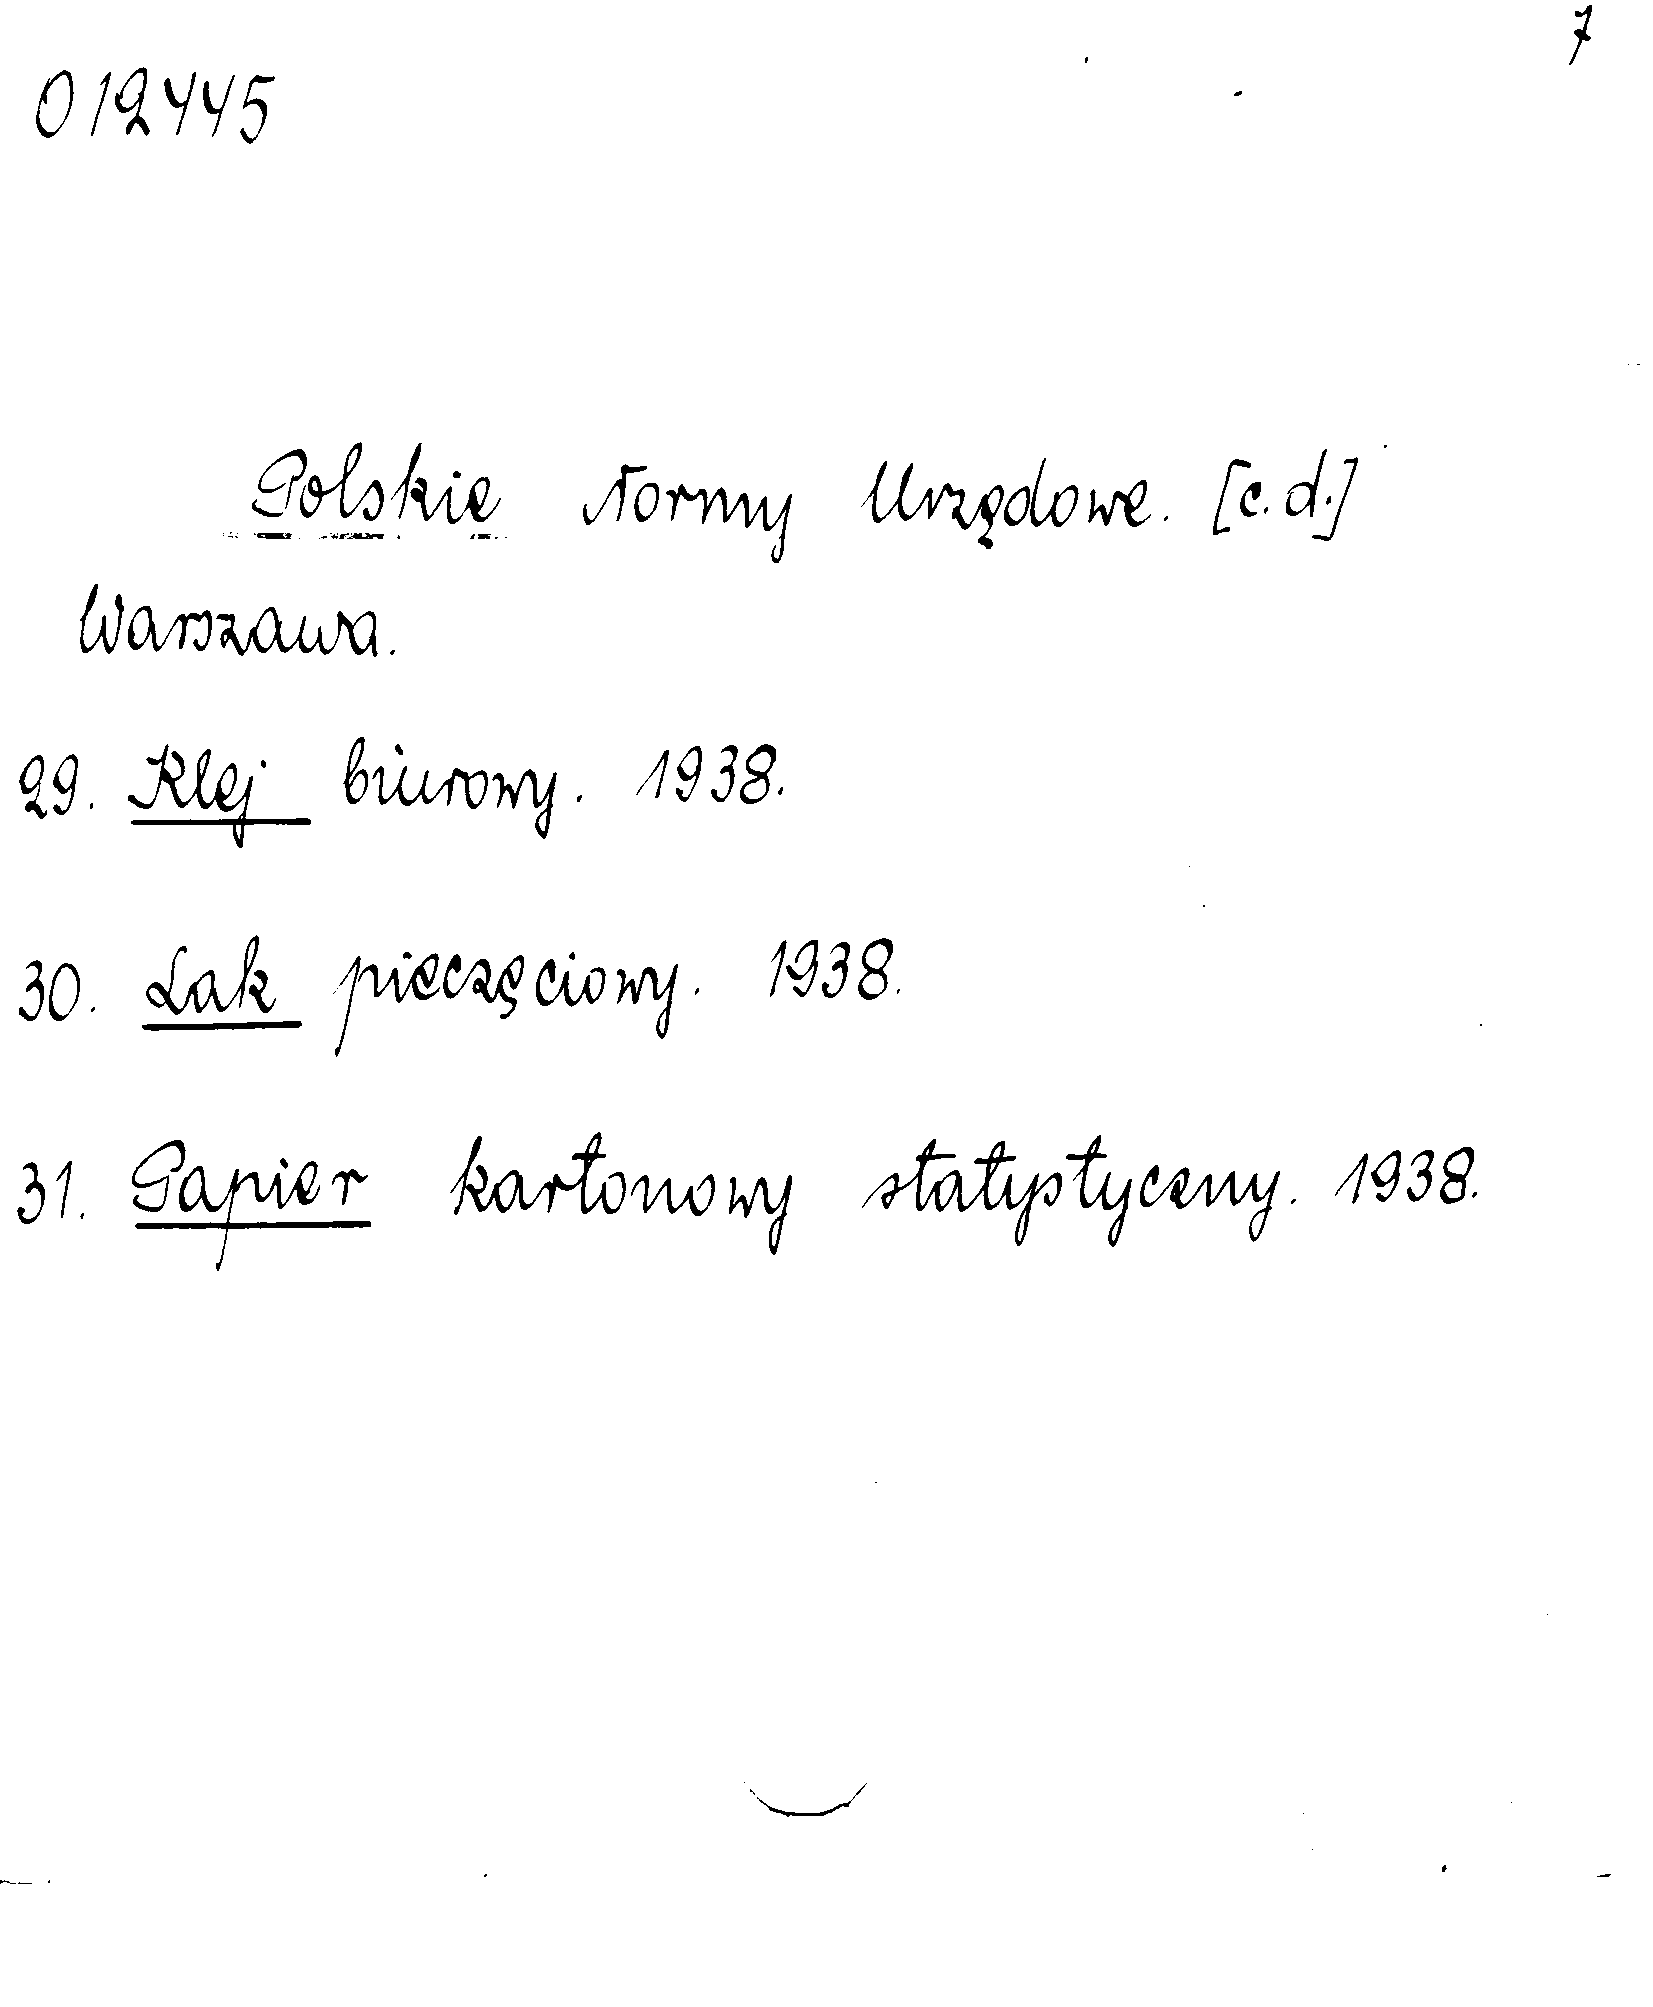 7
012445
Polskie Normy Urzędowe. [c.d.]
Warszawa.
29. Klej biurowy. 1938.
30. Lak pieczęciowy. 1938.
31. Papier kartonowy statystyczny. 1938.